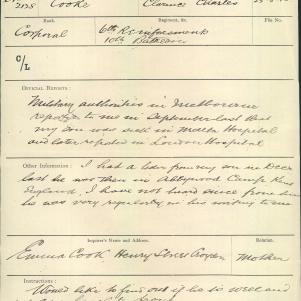 2128 Cooke Clarence Charles
Rank Regiment, &c.
Corporal 6th Reinforcements
10th Battalion
C/L
OFFICIAL REPORTS :
Military authorities in Melbourne
reported to me in September last that
my son was sick in Malta Hospital
and later reported in London Hospital
Other Information : I had a letter from my son in Decr
last he was then in Abbywood Camp Kent
England, I have not heard since from him
he was very regularly in his writing to me
Inquirer's Name and Address. Relation.
Emma Cook Henry Street Croydon Mother
Instructions :
Would like to find out if he is well and